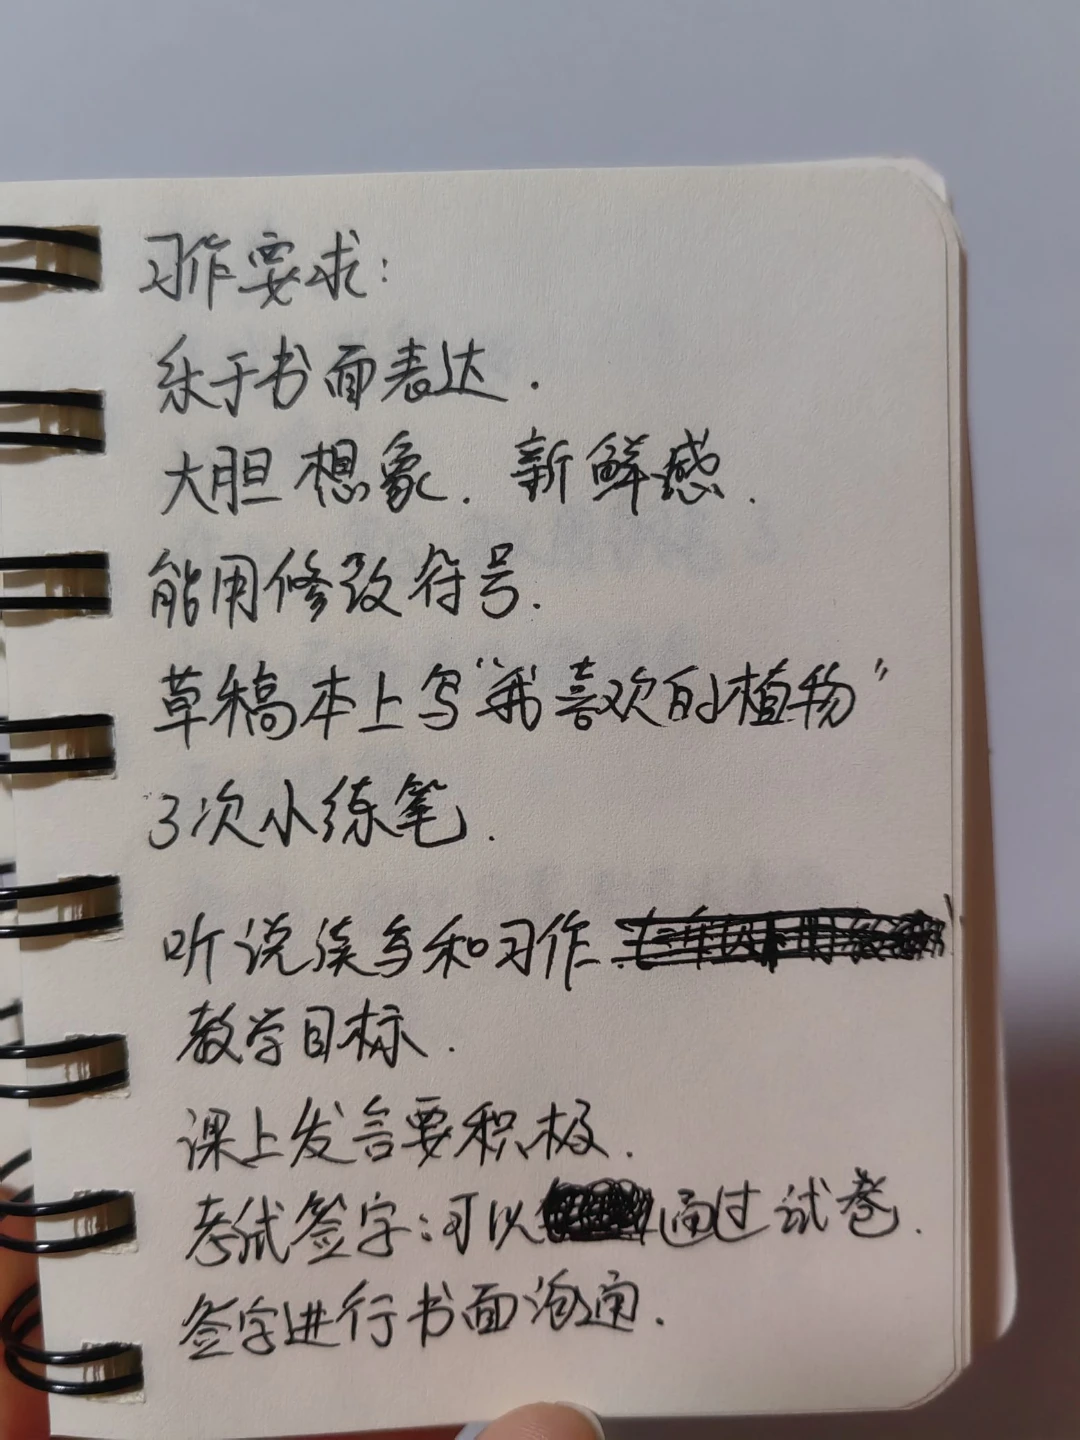 习作要求:
乐于书面表达.
大胆想象.新鲜感.
能用修改符号.
草稿本上写“我喜欢的植物”
3次小练笔.
听说读写和习作
教学目标.
课上发言要积极.
考试签字:可以通过试卷.
签字进行书面沟通.